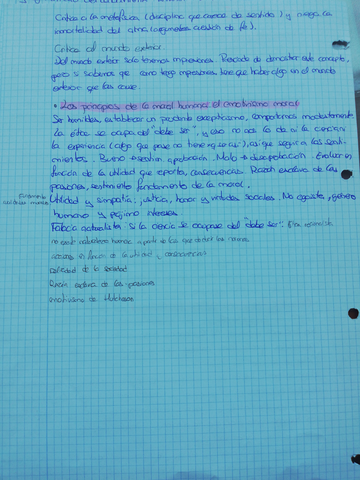 Crítica a la metafísica (disciplina que carece de sentido) y niega la
inmortalidad del alma (argumentos cuestión de fe).
Crítica al mundo exterior
Del mundo exterior solo tenemos impresiones. Prescinde de demostrar este concepto,
pero si sabemos que como tengo impresiones, tiene que haber algo en el mundo
exterior que las cause.
• Los principios de la moral humana: el emotivismo moral
Ser humildes, establecer un prudente escepticismo, comportarnos modestamente
La ética se ocupa del "debe ser", y eso no nos lo da ni la ciencia ni
la experiencia (algo que pase no tiene xq ser así), así que seguir a los senti-
mientos. Bueno → sentim aprobación. Malo → desaprobación. Evaluar en
función de la utilidad que aporta, consecuencias. Razón esclava de las
pasiones, sentimiento fundamento de la moral.
Utilidad y simpatía, justicia, honor y virtudes sociales. No egoísta, género
humano y prójimo interesa.
Falacia naturalista. Si la ciencia se ocupase del "debe ser".
no existe naturaleza humana a partir de la q que deducir las normas.
acciones en función de la utilidad y consecuencias
utilidad de la sociedad
Razón esclava de las pasiones
emotivismo de Hutcheson